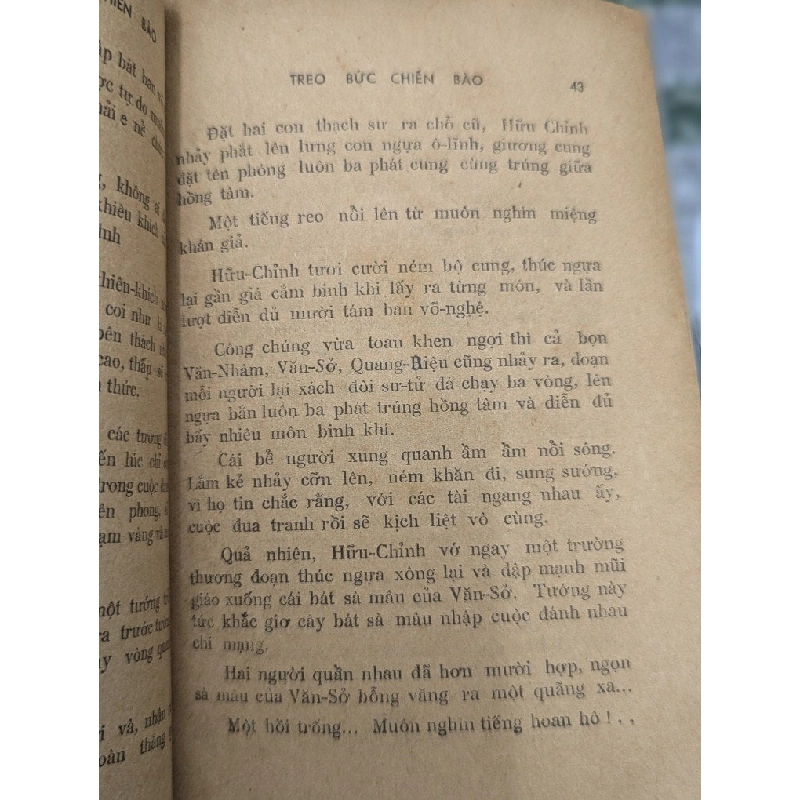 CHIẾN BÀO
TREO BỨC CHIẾN BÀO
43
Đặt hai con thạch sư ra chỗ cũ, Hữu Chỉnh
nhảy phắt lên lưng con ngựa ô-lĩnh, giương cung
đặt tên phóng luôn ba phát cung cùng trúng giữa
hồng tâm.
Một tiếng reo nổi lên từ muôn nghìn miệng
khán giả.
Hữu-Chỉnh tươi cười ném bộ cung, thúc ngựa
lại gần giá cắm binh khí lấy ra từng món, và lần
lượt diễn đủ mười tám ban võ-nghệ.
Công chúng vừa toan khen ngợi thì cả bọn
Văn-Nhâm, Văn-Sở, Quang-Diệu cũng nhảy ra, đoạn
mỗi người lại xách đôi sư-tử đá chạy ba vòng, lên
ngựa bắn luôn ba phát trúng hồng tâm và diễn đủ
bấy nhiêu môn binh khí.
Cái bể người xung quanh ầm ầm nổi sóng.
Lắm kẻ nhảy cỡn lên, ném khăn đi, sung sướng,
vì họ tin chắc rằng, với các tài ngang nhau ấy,
cuộc đua tranh rồi sẽ kịch liệt vô cùng.
Quả nhiên, Hữu-Chỉnh vớ ngay một trường
thương đoạn thúc ngựa xông lại và dập mạnh mũi
giáo xuống cái bát sà mâu của Văn-Sở. Tướng này
tức khắc giơ cây bát sà mâu nhập cuộc đánh nhau
chí mạng.
Hai người quần nhau đã hơn mười hợp, ngọn
sà mâu của Văn-Sở bỗng văng ra một quãng xa...
Một hồi trống... Muôn nghìn tiếng hoan hô ! . .